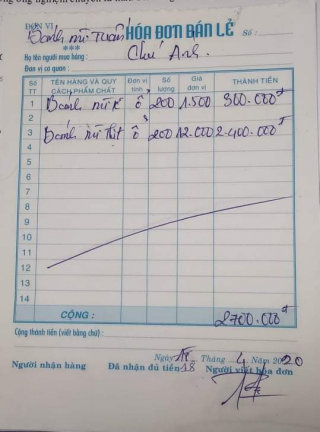 ĐƠN VỊ
HÓA ĐƠN BÁN LẺ Số :
***
Họ tên người mua hàng : Chú Anh
Đơn vị cơ quan :
Số TT TÊN HÀNG VÀ QUY CÁCH PHẨM CHẤT Đơn vị tính Số lượng Giá đơn vị THÀNH TIỀN
1 ổ 200 1.500 300.000đ
2
3 ổ 200 12.000 2.400.000đ
4
5
6
7
8
9
10
11
12
13
14
CỘNG : 2700.000đ
Cộng thành tiền (viết bằng chữ) :
Ngày 18 Tháng 4 Năm 2020
Người nhận hàng Đã nhận đủ tiền 18 Người viết hóa đơn